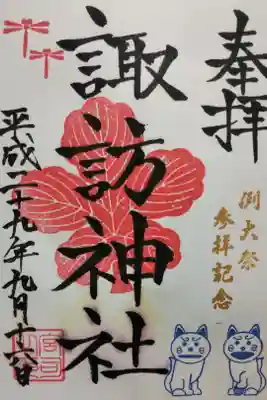 奉拝
例大祭
参拝記念
諏訪神社
平成二十九年九月十六日